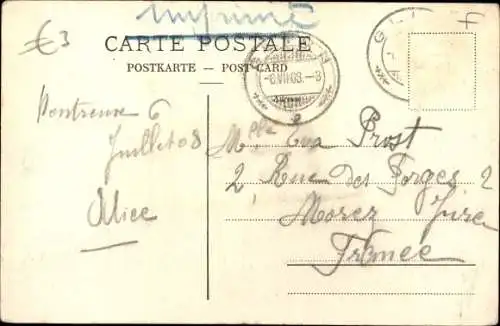 Imprimé
€3
CARTE POSTALE
POSTKARTE — POST-CARD
-6.VII.08.-8
GLI F
Montreux 6
Juillet 08
Alice
Mlle Eva Prost
2, Rue des Forges 2
Morez Jura
France